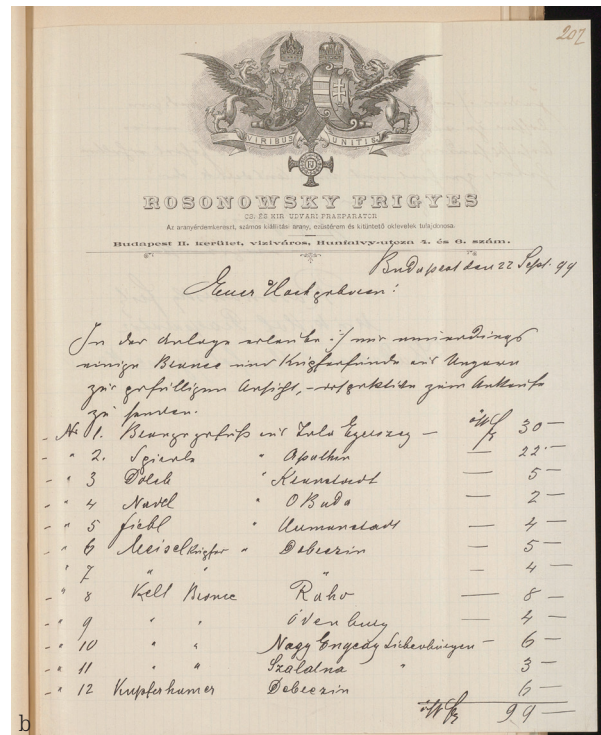 207
VIRIBUS UNITIS
ROSONOWSKY FRIGYES
CS. ÉS KIR. UDVARI PRAEPARATOR
Az aranyérdemkereszt, számos kiállítási arany, ezüstérem és kitüntető oklevelek tulajdonosa.
Budapest II. kerület, viziváros, Hunfalvy-utcza 4. és 6. szám.
Budapest den 22 Sept. 99
Euer Hochgeboren!
In der Anlage erlaube mir neuerdings
einige Bronce und Kupferfunde aus Ungarn
zur gefälligen Ansicht, – respektive zum Ankaufe
zu senden.
– No 1. aus Zala Egerszeg — 30 —
– " 2. " Apathin — 22 —
– " 3 Dolch " — 5 —
– " 4 Nadel " O Buda — 2 —
– " 5 " — 4 —
– " 6 Meisel Kupfer " Debeczin — 5 —
" 7 " " " — 4 —
– " 8 Kelt Bronce Raho — 8 —
– " 9 " " Ödenburg — 4 —
– " 10 " " Nagy Siebenbürgen — 6 —
– " 11 " " Szalatna " 3 —
– " 12 Kupferhamer Debeczin 6 —
99 —
b